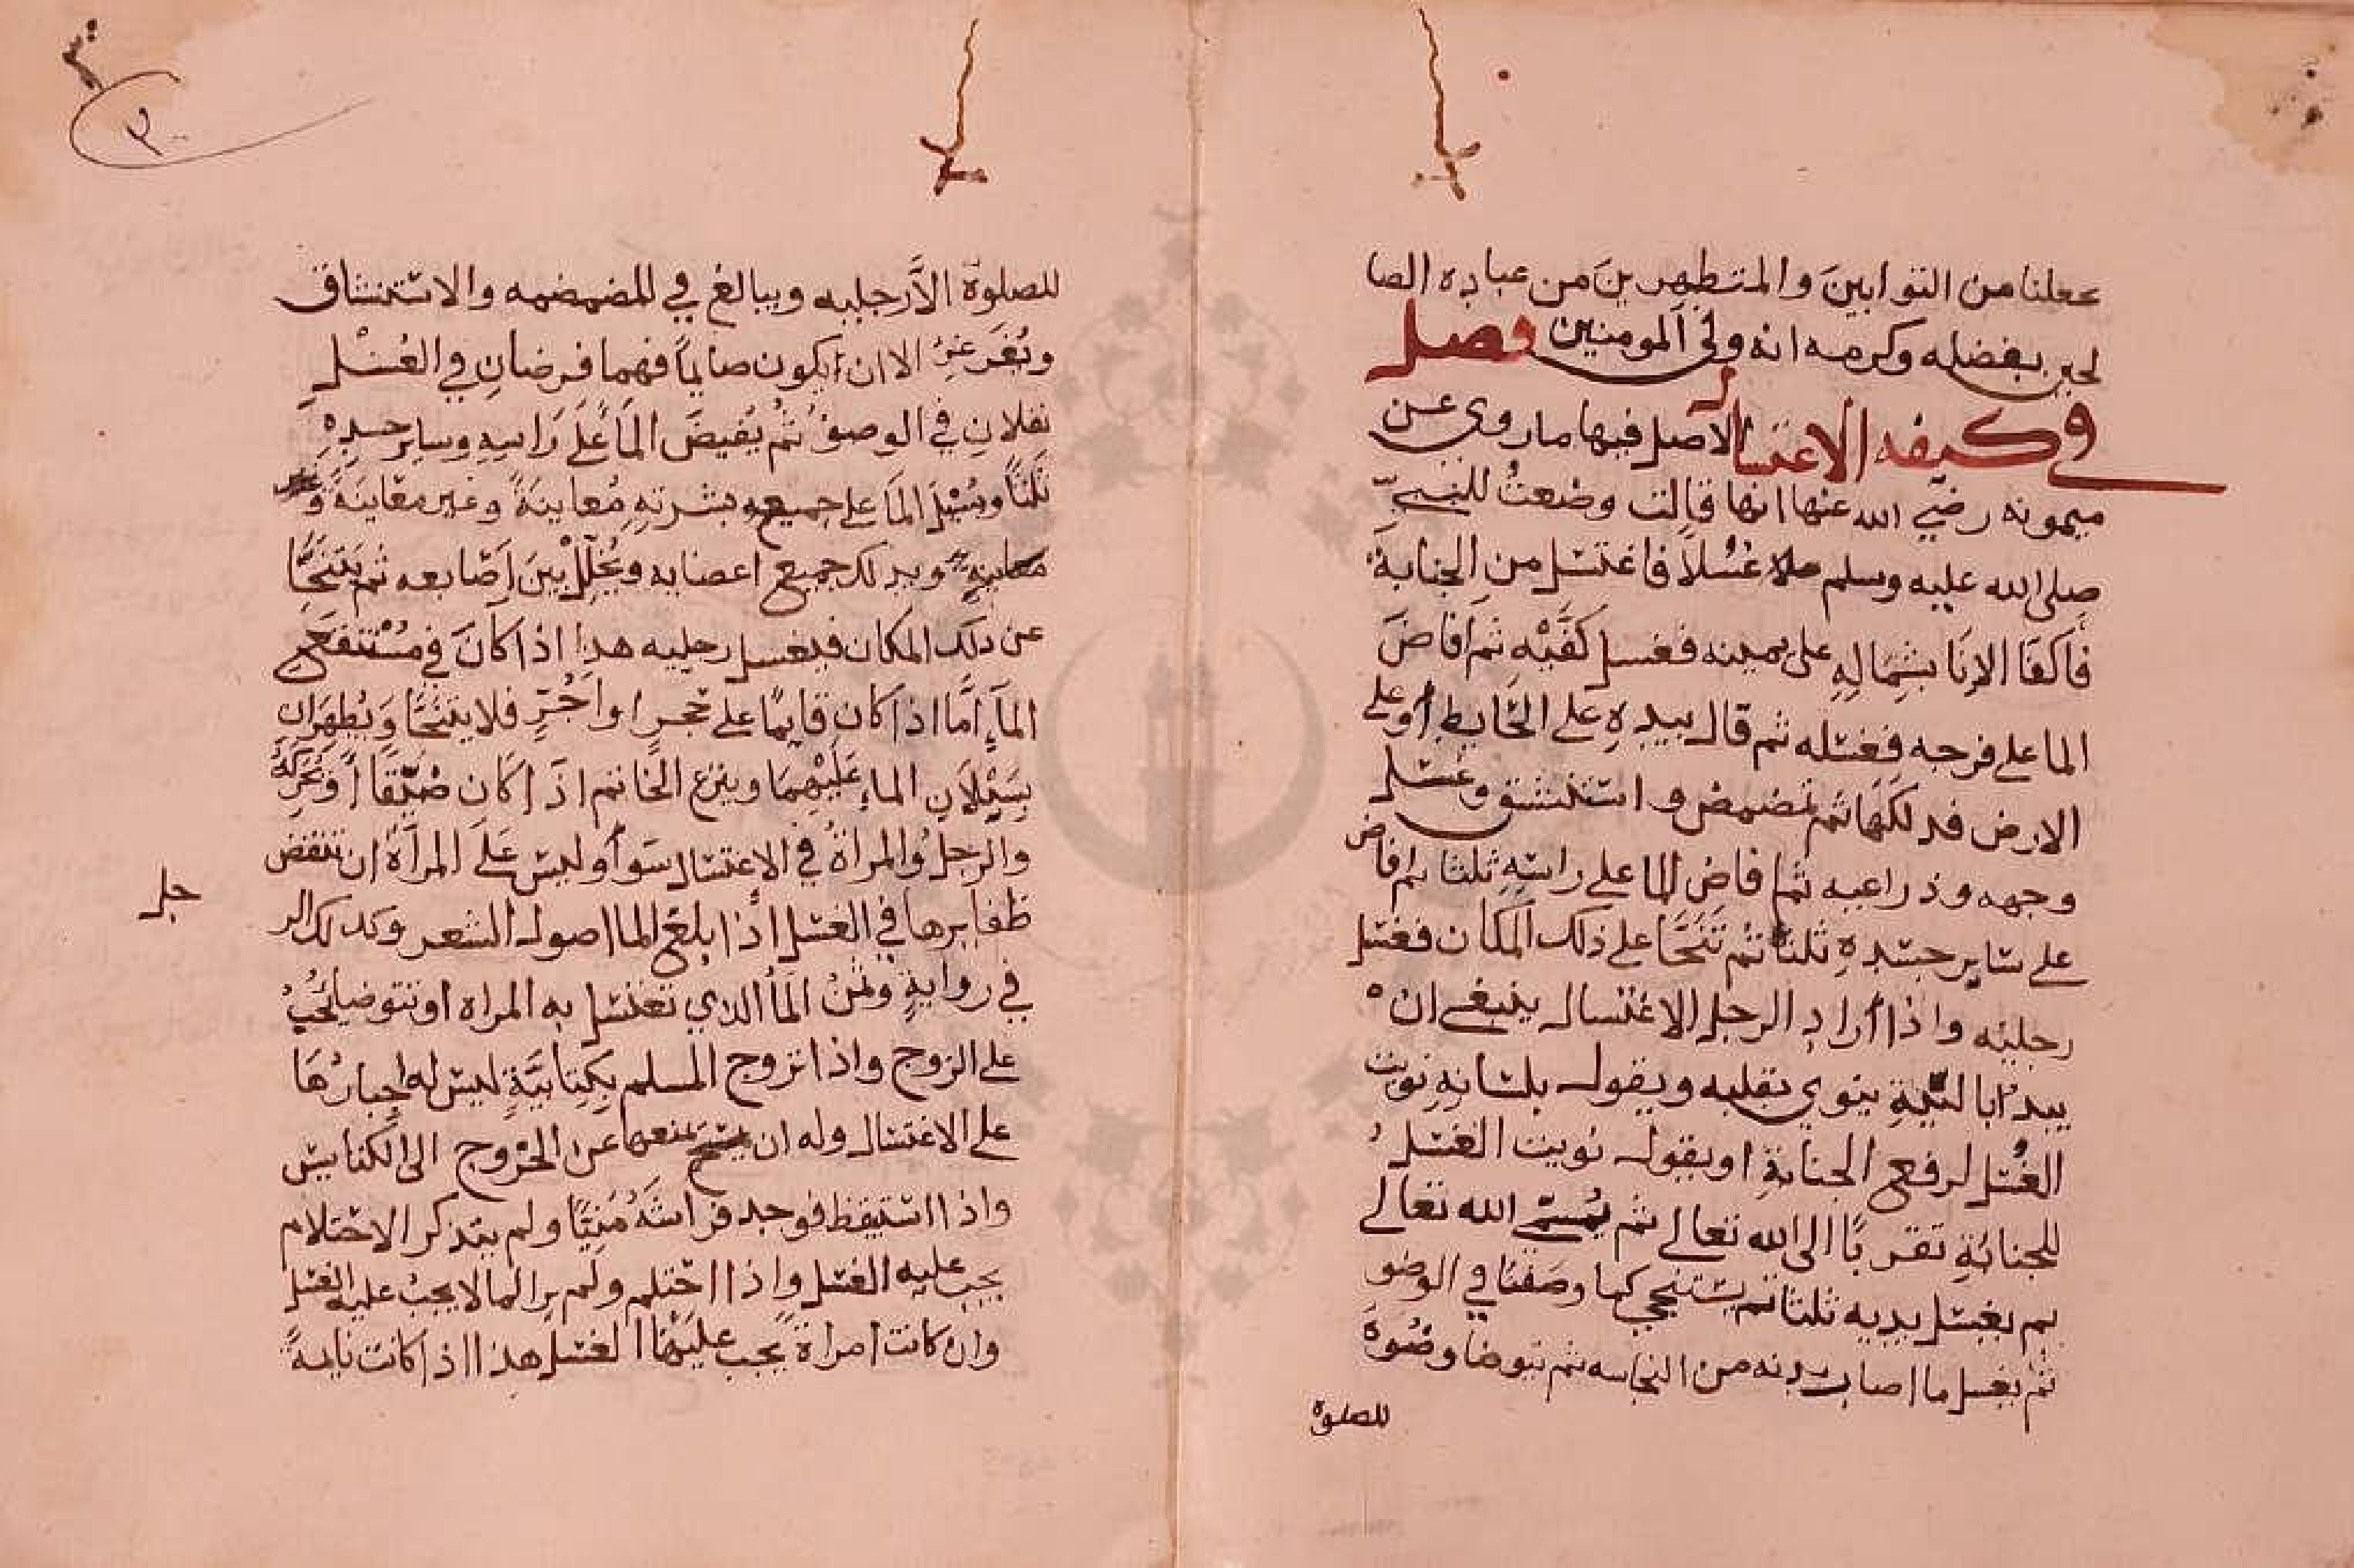 جعلنا من التوابين والمتطهرين من عباده الصا
لحين بفضله وكرمه انه ولى المومنين فصل
في كيفه الاغتسال الاصل فيها ما روي عن
ميمونه رضي الله عنها انها قالت وضعت للنبي
صلى الله عليه وسلم غسلا فاغتسل من الجنابة
فاكفا الانا بشماله على يمينه فغسل كفيه ثم افاض
الما على فرجه فغسله ثم قال بيده على الحايط او على
الارض فدلكها ثم تمضمض و استنشق وغسل
وجهه وذراعيه ثم افاض الما على راسه ثلثا ثم افاض
على ساير جسده ثلثا ثم تنحا على ذلك المكان فغسل
رجليه واذا اراد الرجل الاغتسال ينبغي ان
يبدا بالنية ينوي بقلبه ويقول بلسانه نويت
الغسل لرفع الجنابة او يقول نويت الغسل
للجنابة تقربا الى الله تعالى ثم يسمي الله تعالى
ثم يغسل يديه ثلثا ثم يستنجي كما وصفنا في الوضو
ثم يغسل ما اصاب بدنه من النجاسه ثم يتوضا وضوه
للصلوة
٣
للصلوة الا رجليه ويبالغ في المضمضه والاستنشاق
الا ان يكون صايما فهما فرضان في الغسل
نفلان في الوضو ثم يفيض الما على راسه وساير جسده
ثلثا ويسيل الما على جميع بشرته معاينة وغير معاينة
ويدلك جميع اعضايه ويخلل بين اصابعه ثم يتنحا
عن ذلك المكان فيغسل رجليه هذا اذا كان في مستنقع
الماء اما اذا كان قايما على حجر او اجر فلا يتنحا ويطهران
بسيلان الماء عليهما وينزع الخاتم اذا كان ضيقا او يحركه
والرجل والمراة في الاغتسال سوا وليس على المراة ان تنقض
ظفايرها في الغسل اذا بلغ الما اصول الشعر وكذلك الر
جل
في رواية وثمن الما الذي تغتسل به المراه او تتوضا يجب
على الزوج واذا تزوج المسلم بكتابية ليس له اجبارها
على الاغتسال وله ان يمنعها عن الخروج الى الكنايس
واذا استيقظ فوجد فراشه منيا ولم يتذكر الاحتلام
يجب عليه الغسل واذا احتلم ولم ير الما لا يجب عليه الغسل
وان كانت امراة يجب عليها الغسل هذا اذا كانت نايمة